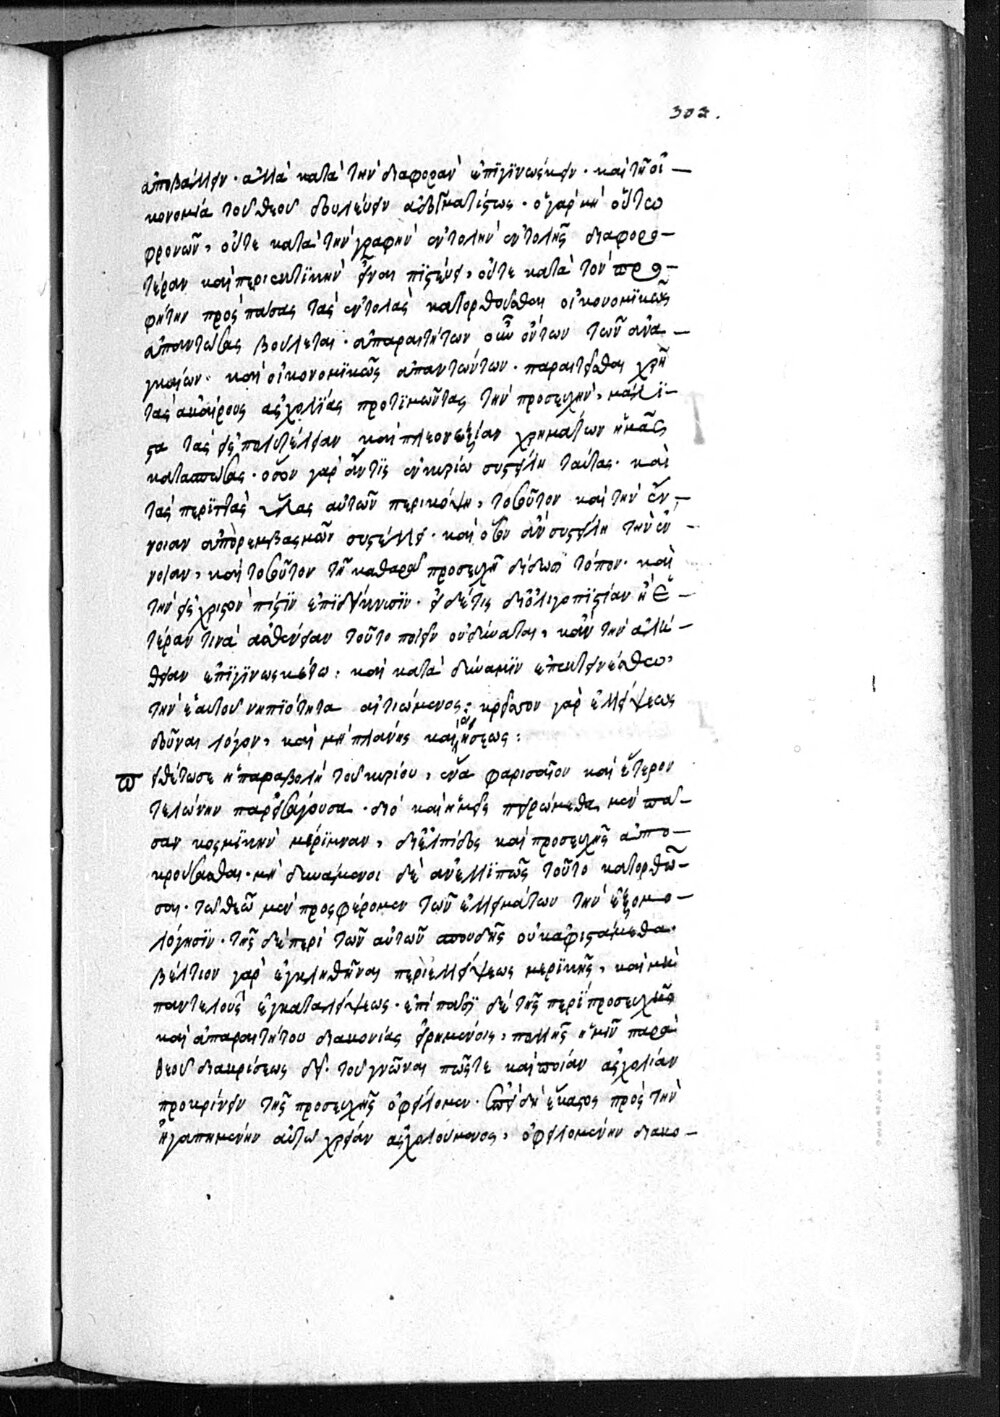 302.
ἀποβάλλειν· ἀλλὰ κατὰ τὴν διαφορὰν ἐπιγινώσκειν· καὶ τῇ οἰ–
κονομίᾳ τοῦ θεοῦ δουλεύειν ἀδιστάκτως· ὁ γὰρ μὴ οὕτω
φρονῶν, οὔτε κατὰ τὴν γραφὴν ἐντολὴν ἐντολῆς διαφορο–
τέραν καὶ περιεκτικὴν εἶναι πιστεύει, οὔτε κατὰ τὸν προ–
φήτην πρὸς πάσας τὰς ἐντολὰς κατορθοῦσθαι οἰκονομικῶς
ἀπαντώσας βούλεται· ἀπαραιτήτων οὖν ὄντων τῶν ἀνα–
γκαίων· καὶ οἰκονομικῶς ἀπαντώντων· παραιτεῖσθαι χρὴ
τὰς ἀκαίρους ἀσχολίας προτιμῶντας τὴν προσευχὴν, μάλι–
στα τὰς εἰς πολυτέλειαν καὶ πλεονεξίαν χρημάτων ἡμᾶς
κατασπώσας· ὅσον γὰρ ἄν τις ἐν κυρίῳ συστείλῃ ταύτας· καὶ
τὰς περιττὰς ὕλας αὐτῶν περικόψῃ, τοσοῦτον καὶ τὴν ἔν–
νοιαν ἀπὸ ρεμβασμῶν συστέλλει· καὶ ὅσον ἂν συστείλῃ τὴν ἔν–
νοιαν, καὶ τοσοῦτον τῇ καθαρᾷ προσευχῇ δίδωσι τόπον· καὶ
τὴν εἰς χριστὸν πίστιν ἐπιδείκνυσιν· εἰ δέ τις δι' ὀλιγοπιστίαν ἢ ἑ–
τέραν τινὰ ἀσθένειαν τοῦτο ποιεῖν οὐ δύναται, κἂν τὴν ἀλή–
θειαν ἐπιγινωσκέτω, καὶ κατὰ δύναμιν ἐπεκτεινέσθω,
τὴν ἑαυτοῦ νηπιότητα αἰτιώμενος: κρεῖσσον γὰρ ἐλλείψεως
δοῦναι λόγον, καὶ μὴ πλάνης καὶ οἰήσεως:
πειθέτω σε ἡ παραβολὴ τοῦ κυρίου, ἕνα φαρισαῖον καὶ ἕτερον
τελώνην παρεισάγουσα· διὸ καὶ ἡμεῖς πειρώμεθα μὲν πᾶ–
σαν κοσμικὴν μέριμναν, δι' ἐλπίδος καὶ προσευχῆς ἀπο–
κρούσασθαι· μὴ δυνάμενοι δὲ ἀνελλιπῶς τοῦτο κατορθῶ–
σαι· τῷ θεῷ μὲν προσφέρομεν τῶν ἐλλειμάτων τὴν ἐξομο–
λόγησιν· τῆς δὲ περὶ τῶν αὐτῶν σπουδῆς οὐκ ἀφιστάμεθα·
βέλτιον γὰρ ἐγκληθῆναι περὶ ἐλλείψεως μερικῆς, καὶ μὴ
παντελοῦς ἐγκαταλείψεως· ἐπὶ πᾶσι δὲ τῆς περὶ προσευχῆς
καὶ ἀπαραιτήτου διακονίας εἰρημένοις, πολλῆς ἡμῖν παρὰ
θεοῦ διακρίσεως δεῖ· τοῦ γνῶναι πῶς τε καὶ ποίαν ἀσχολίαν
προκρίνειν τῆς προσευχῆς ὀφείλομεν· ἐπειδὴ ἕκαστος πρὸς τὴν
ἠγαπημένην αὐτῷ χρείαν ἀσχολούμενος, ὀφειλομένην διακο–